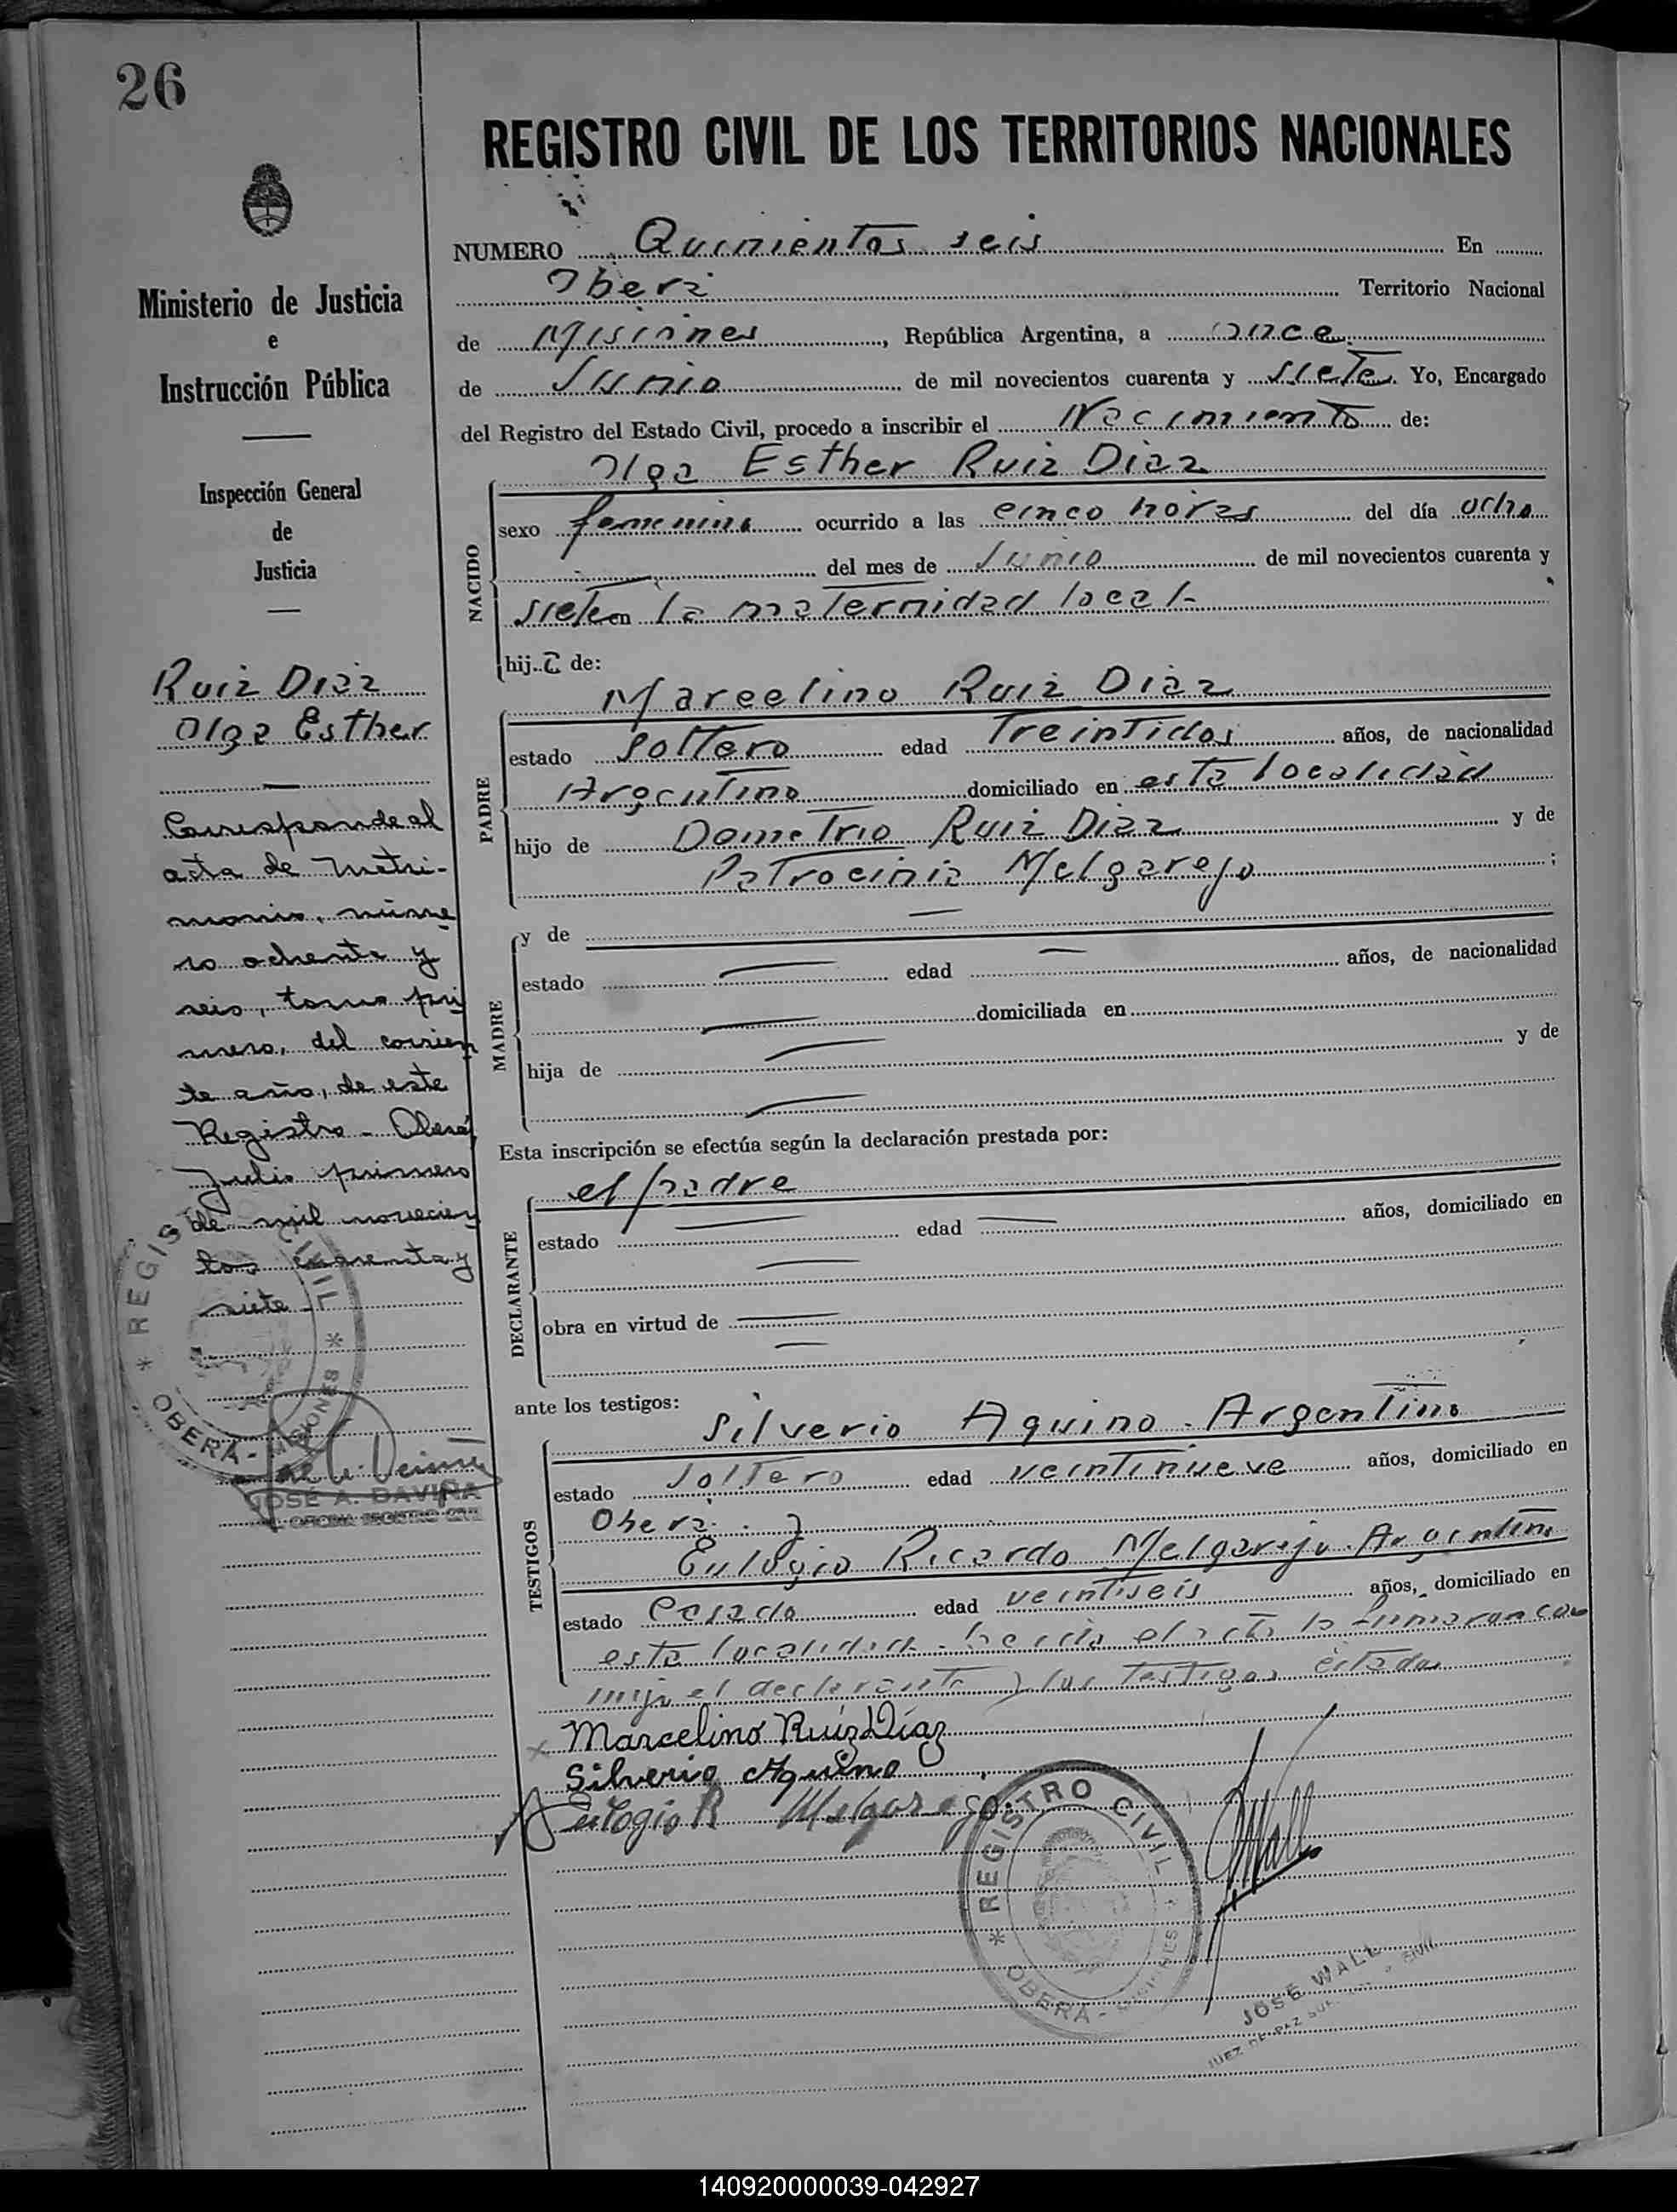 26
REGISTRO CIVIL DE LOS TERRITORIOS NACIONALES
Ministerio de Justicia
e
Instrucción Pública
Inspección General
de
Justicia
Ruiz Diaz
Olga Esther
Corresponde al
acta de Matri-
monio, núme
ro ochenta y
seis, tomo pri
mero, del corrien
te año, de este
Registro - Oberá,
Julio primero
de mil novecien
tos cuarenta y
siete -
REGIS CIVIL
OBERA - MISIONES
JOSÉ A. DAVIÑA
OFICINA REGISTRO CIVIL
NUMERO Quinientos seis En
Oberá Territorio Nacional
de Misiones, República Argentina, a once
de Junio de mil novecientos cuarenta y siete. Yo, Encargado
del Registro del Estado Civil, procedo a inscribir el Nacimiento de:
NACIDO
Olga Esther Ruiz Diaz
sexo femenino ocurrido a las cinco horas del día ocho
del mes de Junio de mil novecientos cuarenta y
siete en la maternidad local-
hija de:
PADRE
Marcelino Ruiz Diaz
estado soltero edad Treintidos años, de nacionalidad
Argentino domiciliado en esta localidad
hijo de Demetrio Ruiz Diaz y de
Patrocinia Melgarejo ;
MADRE
y de
estado edad años, de nacionalidad
domiciliada en
hija de y de
Esta inscripción se efectúa según la declaración prestada por:
DECLARANTE
el padre
estado edad años, domiciliado en
obra en virtud de
ante los testigos:
TESTIGOS
Silverio Aquino. Argentino
estado soltero edad veintinueve años, domiciliado en
Oberá. y
Eulogio Ricardo Melgarejo. Argentino
estado casado edad veintiseis años, domiciliado en
esta localidad. leida el acta la firmaran con
migo el declarante y los testigos citados
Marcelino Ruiz Díaz
Silverio Aquino
Eulogio R Melgarejo
REGISTRO CIVIL
OBERA - MISIONES
JOSE WALL
JUEZ DE PAZ
140920000039-042927